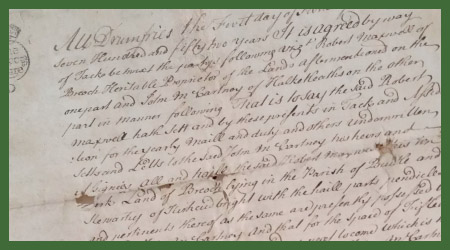 At Drumfries the fivth day of
Seven Hundred and fifty two Years It is agreed by way
of Tack betwixt the partys following viz Robert Maxwell of
Breoch Heritable Proprietor of the Lands aftermentioned on the
one part and John McCartney of Halketleaths on the other
part in manner following That is to say the said Robert
Maxwell hath Sett and by these presents in Tack and Assed
ation for the yearly Maill and duty and others underwritten
Setts and Letts to the said John McCartney his heirs and
All and haill the said Robert Maxwell his
Land of Breoch lying in the Parish of Buittle and
Stewartry of Kirkcudbright with the haill parts pendicles
and pertinents thereof as the same are presently possessed
McCartney And that for the Space of
to come which is